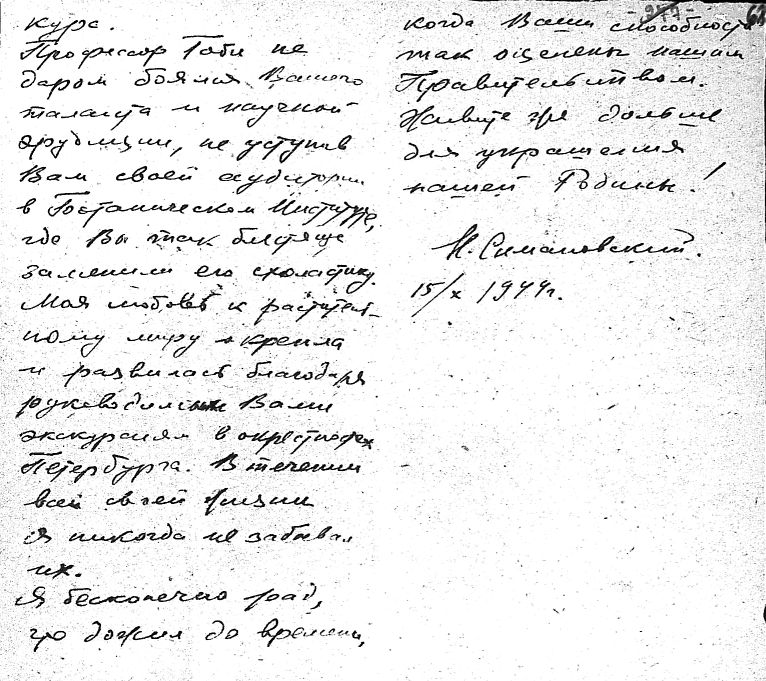 курс.
Профессор Гоби не
даром боялся Вашего
таланта и научной
эрудиции, не уступив
Вам своей аудитории
в Ботаническом Институте,
где Вы так блестяще
заменили его схоластику.
Моя любовь к раститель-
ному миру окрепла
и развилась благодаря
руководимым Вами
экскурсиям в окрестностях
Петербурга. В течении
всей своей жизни
я никогда не забывал
их.
Я бесконечно рад,
что дожил до времени,
когда Ваши способности
так оценены нашим
Правительством.
Живите же дольше
для украшения
нашей Родины!
Н. Симановский.
15/X 1944г.